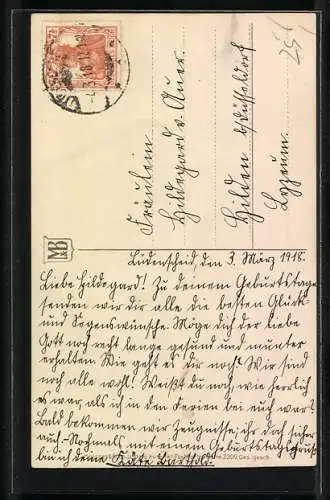 Fräulein
Hildegard v. Auer.
Hilden b/Düsseldorf
Lyzeum.
MB
Lüdenscheid, den 3. März 1918.
Liebe Hildegard! Zu deinem Geburtstage
senden wir dir alle die besten Glück-
und Segenswünsche. Möge dich der liebe
Gott noch recht lange gesund und munter
erhalten. Wie geht es dir noch? Wir sind
noch alle wohl. Weißt du noch, wie herrlich
es war, als ich in den Ferien bei euch war?
Bald bekommen wir Zeugnisse, ihr doch sicher
auch. Nochmals mit einem Geburtstagsgruß
bin ich deine Käte